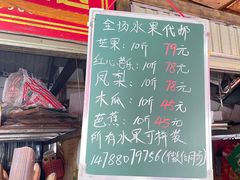 全场水果代邮
芒果:10斤 79元
红心芭乐:10斤 78元
凤梨:10斤 78元
木瓜:10斤 45元
芭蕉:10斤 45元
所有水果可拼装
14788079756(微信同步)